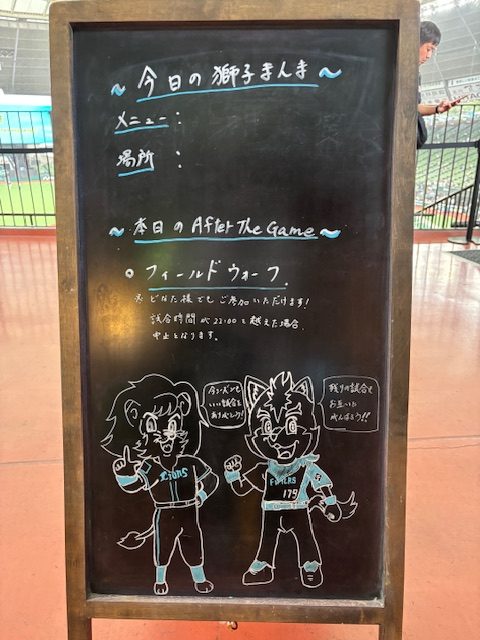 ～今日の獅子まんま～
メニュー：
場所：
～本日のAfter The Game～
○フィールドウォーク
※どなた様でもご参加いただけます！
試合時間が22:00を越えた場合、
中止となります。
今シーズンも
いい試合を
ありがとう！
残りの試合も
お互いに
がんばろう!!
Lions
FIGHTERS
179